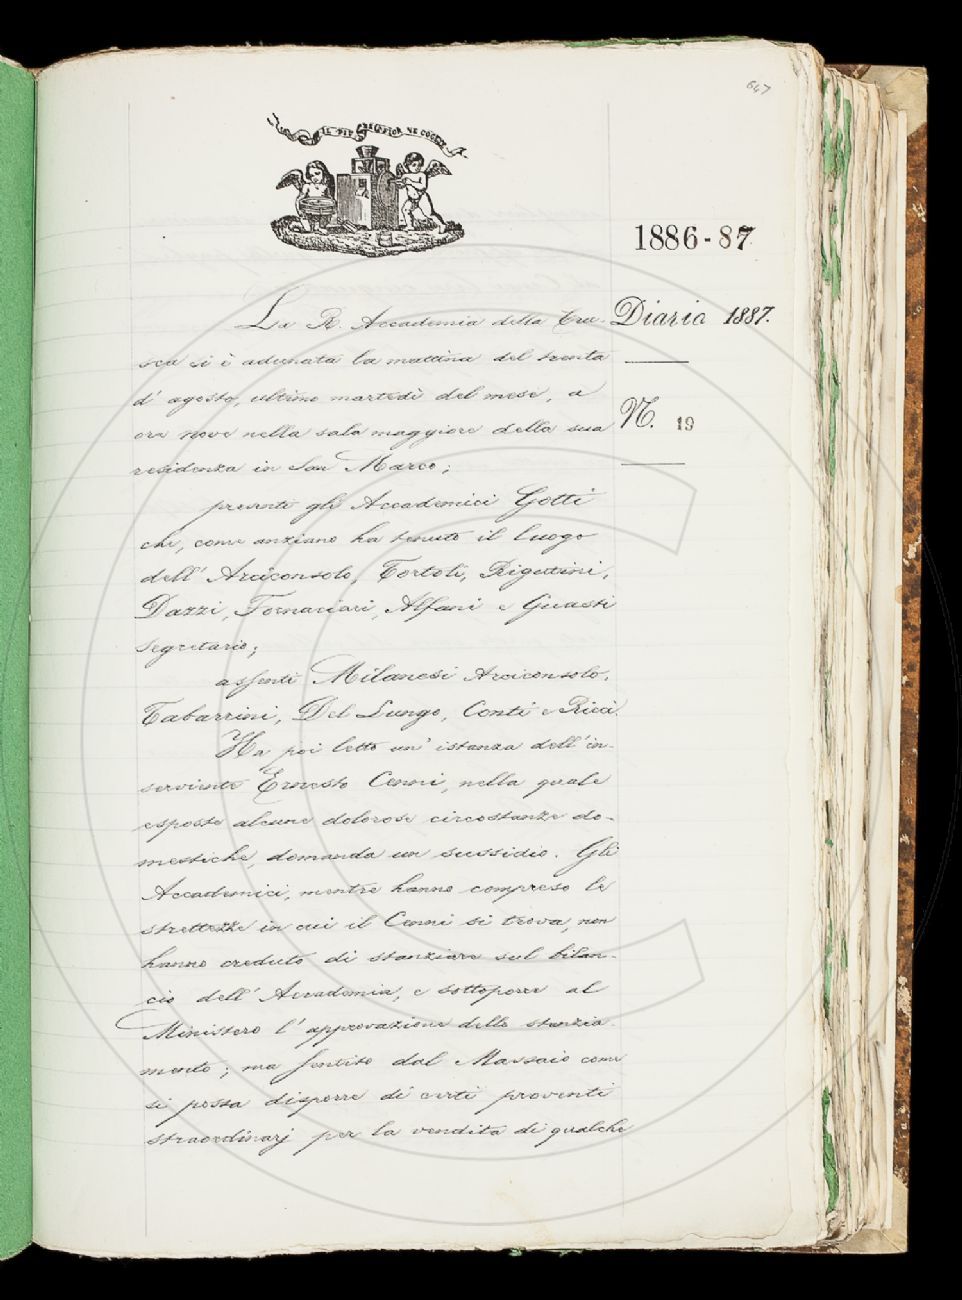 647
IL PIÙ BEL FIOR NE COGLIE
1886-87
Diario 1887.
N. 19
La R. Accademia della Cru-
sca si è adunata la mattina del trenta
d'agosto, ultimo martedì del mese, a
ore nove nella sala maggiore della sua
residenza in San Marco;
presenti gli Accademici Gotti
che, come anziano ha tenuto il luogo
dell'Arciconsolo, Tortoli, Rigutini,
Dazzi, Fornaciari, Alfani e Guasti
segretario;
assenti Milanesi Arciconsolo,
Tabarrini, Del Lungo, Conti e Ricci.
Ha poi letto un'istanza dell'in-
serviente Ernesto Cenni, nella quale
esposte alcune dolorose circostanze do-
mestiche, domanda un sussidio. Gli
Accademici, mentre hanno compreso le
strettezze in cui il Cenni si trova, non
hanno creduto di stanziare sul bilan-
cio dell'Accademia, e sottoporre al
Ministero l'approvazione dello stanzia-
mento; ma sentito dal Massaio come
si possa disporre di certi proventi
straordinarj per la vendita di qualche